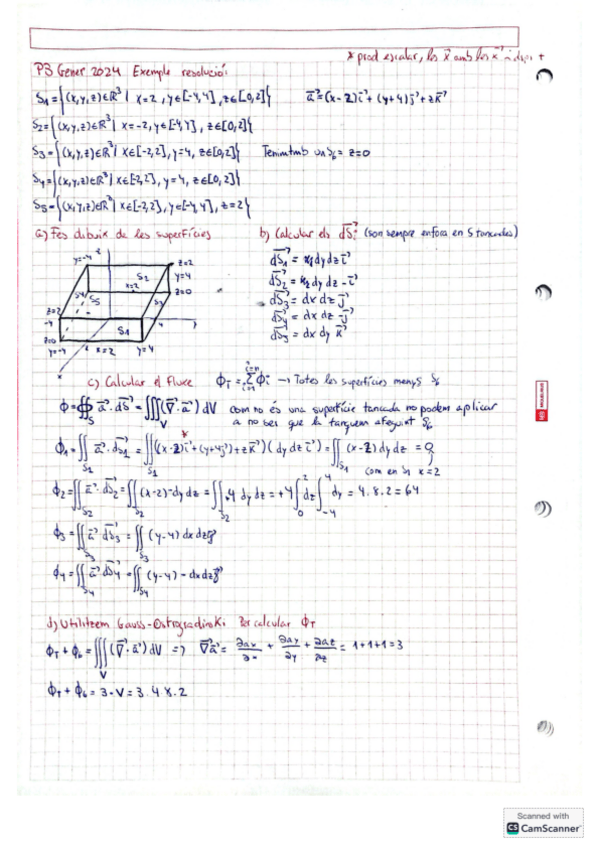 * prod escalar, los x⃗ amb los x⃗
P3 Gener 2024 Exemple resolució:
S1={(x,y,z)∈R³ | x=2, y∈[-4,4], z∈[0,2]} a⃗=(x-2)i⃗+(y+4)j⃗+zk⃗
S2={(x,y,z)∈R³ | x=-2, y∈[-4,4], z∈[0,2]}
S3={(x,y,z)∈R³ | x∈[-2,2], y=4, z∈[0,2]} Tenim tmb un S6= z=0
S4={(x,y,z)∈R³ | x∈[-2,2], y=4, z∈[0,2]}
S5={(x,y,z)∈R³ | x∈[-2,2], y∈[-4,4], z=2}
a) Fes dibuix de les superfícies b) Calcular els dS⃗i (son sempre enfora en S tancades)
z
y=-4
z=2
y=4
z=0
S2
x=2
S4
S5
S3
S1
z=2
-4
4
y
z=0
y=-4
x=2
y=4
x
dS1⃗ = x1 dy dz i⃗
dS2⃗ = x2 dy dz -i⃗
dS3⃗ = dx dz j⃗
dS4⃗ = dx dz -j⃗
dS5⃗ = dx dy k⃗
c) Calcular el Fluxe ΦT = Σ Φi → Totes les superfícies menys S6
Φ=∯S a⃗·dS⃗ = ∭V (∇⃗·a⃗) dV com no és una superfície tancada no podem aplicar
a no ser que la tanquem afegint S6
Φ1=∬S1 a⃗·dS1⃗ = ∬S1 ((x-2)i⃗+(y+4j⃗)+zk⃗)(dy dz i⃗) = ∬S1 (x-2) dy dz = 0
com en S1 x=2
Φ2=∬S2 a⃗·dS2⃗ = ∬S2 (x-2)-dy dz = ∬S2 4 dy dz = +4 ∫₀² dz ∫₋₄⁴ dy = 4.8.2 = 64
Φ3=∬S3 a⃗·dS3⃗ = ∬S3 (y-4) dx dz j⃗
Φ4=∬S4 a⃗·dS4⃗ = ∬S4 (y-4) - dx dz j⃗
d) Utilitzem Gauss-Ostrogradinski Per calcular ΦT
ΦT + Φ6 = ∭V (∇⃗·a⃗) dV => ∇⃗a⃗ = ∂ax/∂x + ∂ay/∂y + ∂az/∂z = 1+1+1=3
ΦT + Φ6 = 3·V = 3.4.8.2
Scanned with
CS CamScanner